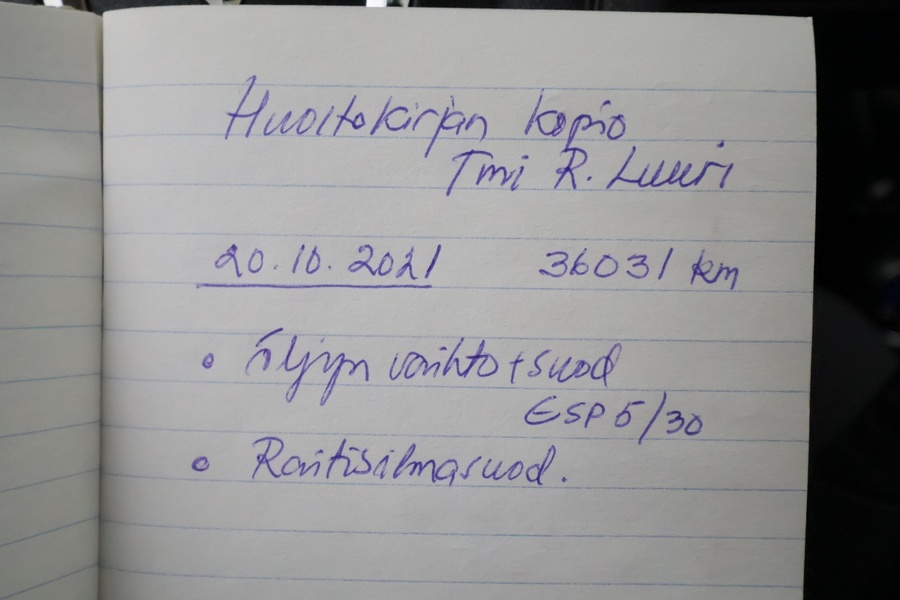 Huoltokirjan kopio
Tmi R. Luuri
20.10.2021 36031 km
• Öljyn vaihto + suod
ESP 5/30
• Raitisilmasuod.